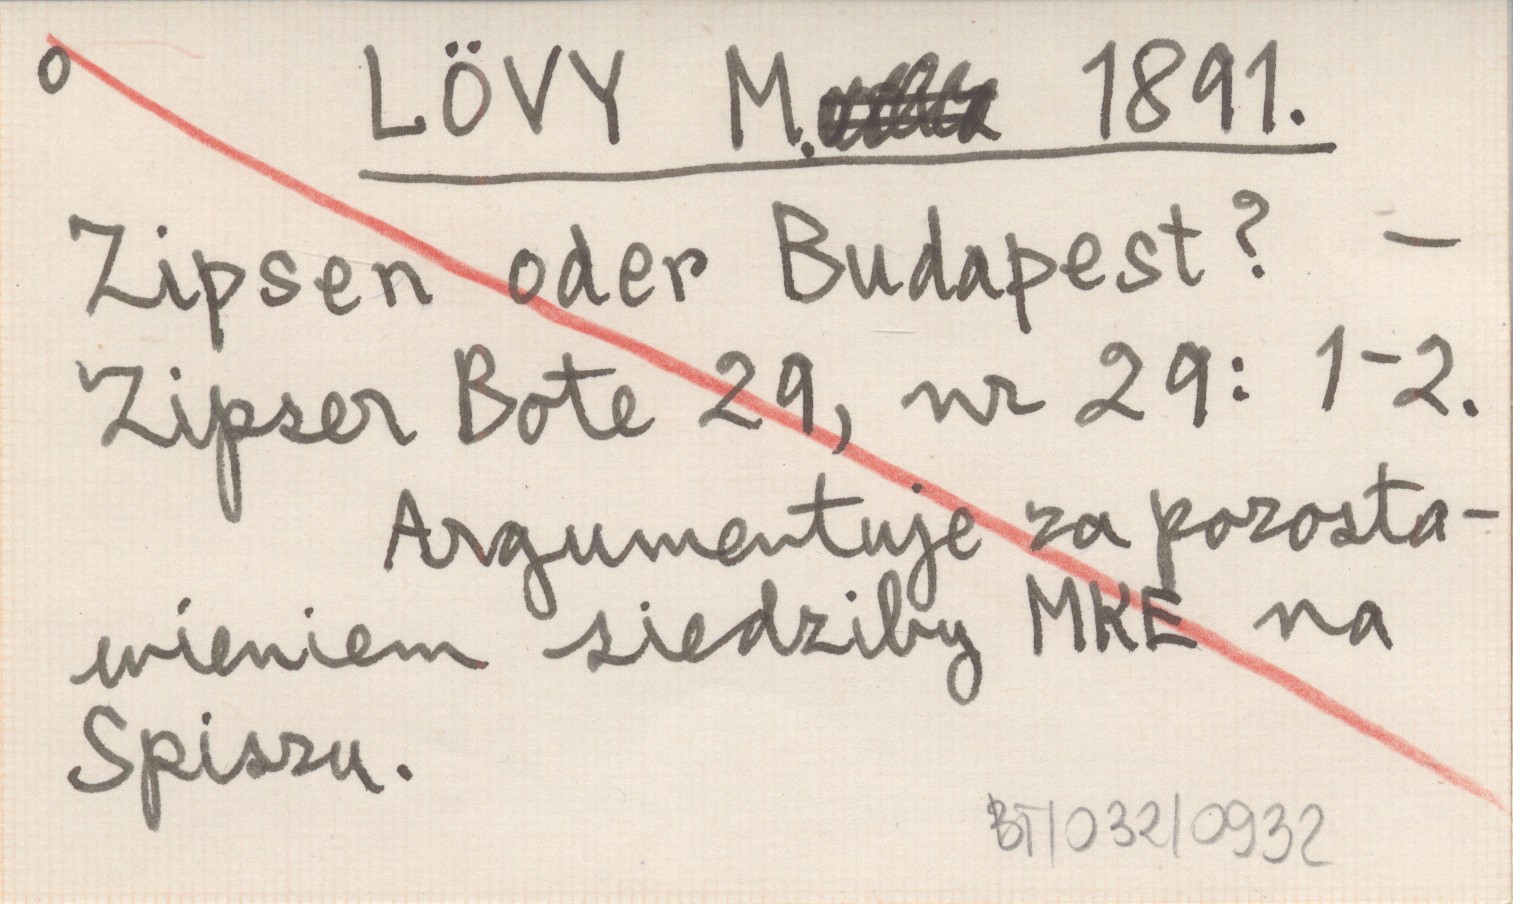 o LÖVY M. 1891.
Zipsen oder Budapest? –
Zipser Bote 29, nr 29: 1-2.
Argumentuje za pozosta-
wieniem siedziby MKE na
Spiszu.
BT/032/0932